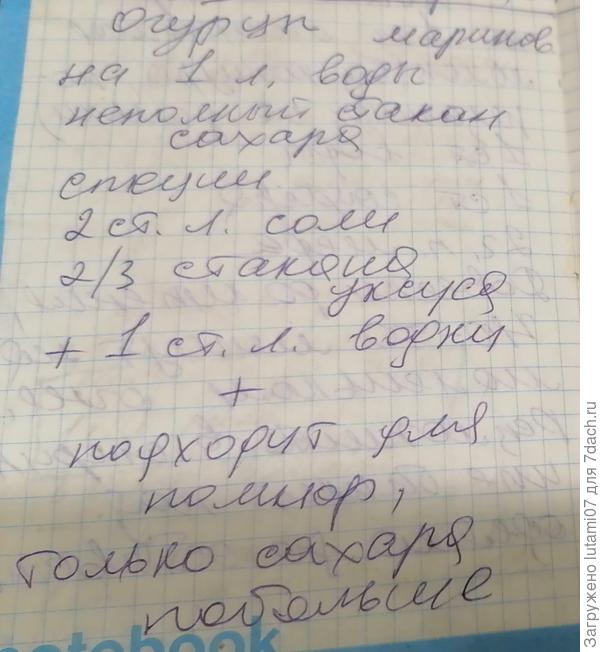 Огурцы маринов
на 1 л. воды
неполный стакан
сахара
специи
2 ст. л. соли
2/3 стакана
уксуса
+ 1 ст. л. водки
+
подходит для
помидор,
только сахара
побольше
notebook
Загружено lutami07 для 7dach.ru